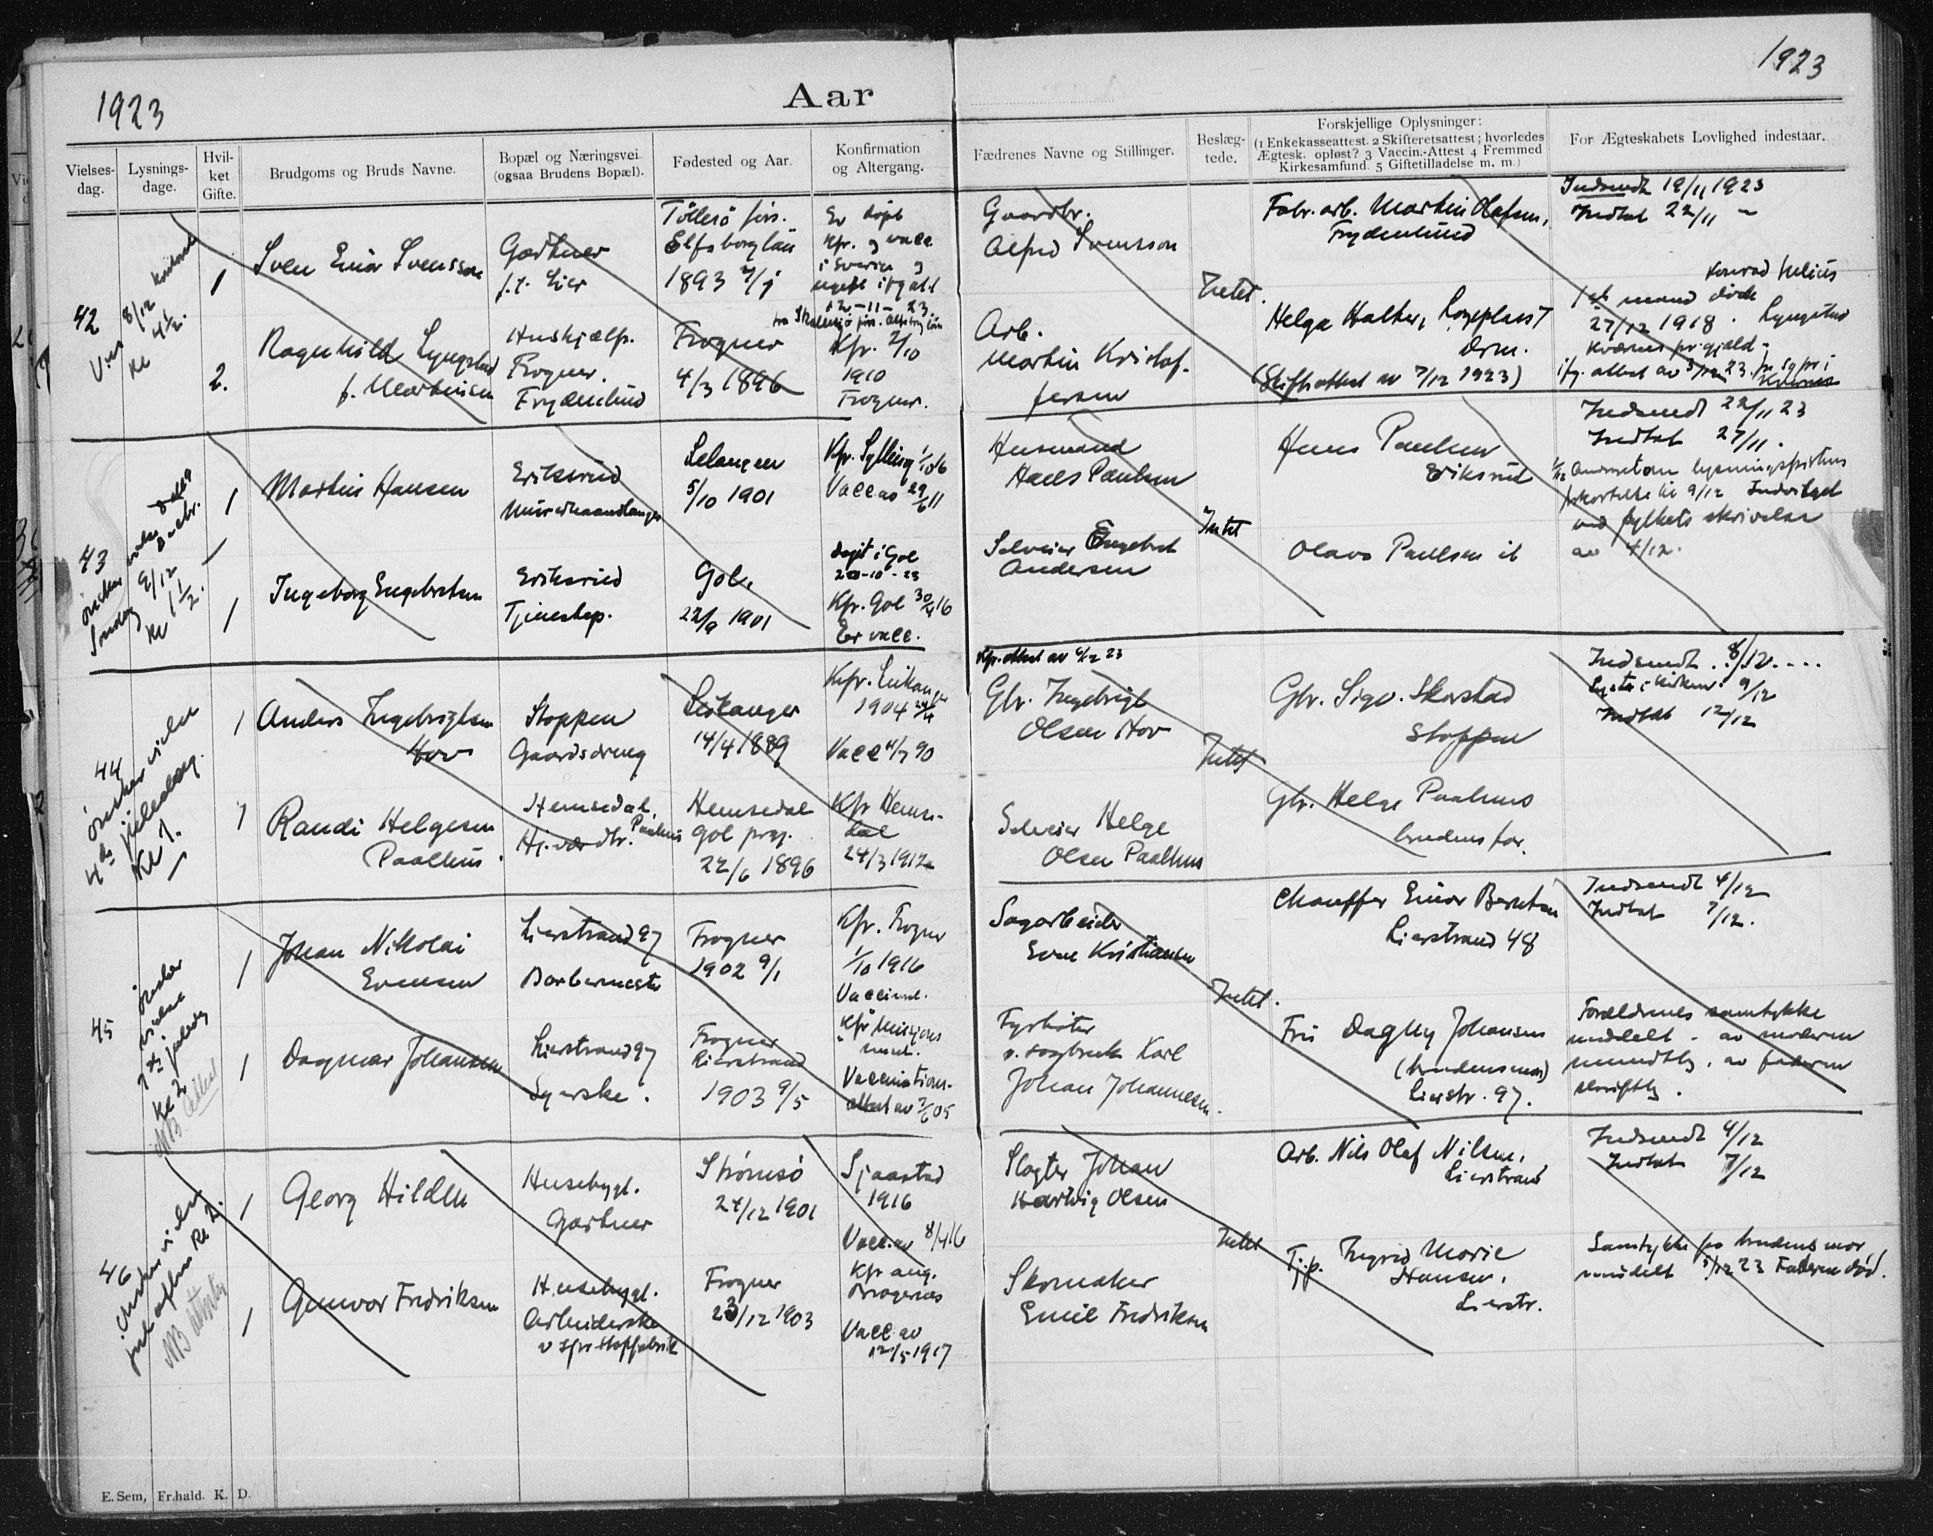 1923
Aar
1923
Vielses-dag.
Lysnings-dage.
Hvil-ket Gifte.
Brudgoms og Bruds Navne.
Bopæl og Næringsvei (ogsaa Brudens Bopæl).
Fødested og Aar.
Konfirmation og Altergang.
Fædrenes Navne og Stillinger.
Beslæg-tede.
Forskjellige Oplysninger:
(1 Enkekasseattest. 2 Skifteretsattest; hvorledes
Ægtesk. opløst? 3 Vaccin.-Attest 4 Fremmed
Kirkesamfund. 5 Giftetilladelse m. m.)
For Ægteskabets Lovlighed indestaar.
42
8/12
Kl 4½.
1
Sven Einar Svensson
Gartner
f.t. Lier
Elfsborg län
1893
Er døpt
Kfr. og vacc
i Sverige og
12-11-23.
Gaardbr.
Alfred Svensson
Intet.
Fabr.arb. Martin Olafsen,
Frydenlund
Indsendt 19/11 1923
Indtat 22/11 –
2.
Ragnhild Lyngstad
f. Martinsen
Hushjælp.
Frogner.
Frydenlund
Frogner
4/3 1896
Kfr. 2/10
1910
Frogner.
Arb.
Martin Kristof-
fersen
Helga Halker,
Drm.
(Skifteattest av 7/12 1923)
Konrad Julius
1ste mand døde
27/12 1918. Lyngstad
43
ønsker vielse
Søndag 9/12
Kl 1½.
1
Martin Hansen
Eriksrud
Murerhaandlanger
5/10 1901
Kfr. Sylling 1/10 16
Vacc av 29/6 11
Husmand
Hans Paulsen
Intet
Hans Paulsen
Eriksrud
Indsendt 22/11 23
Indtat 27/11.
forkortelse til 9/12 Indvilget
ved fylkets skrivelse
av 4/12.
1
Ingeborg Engebretsen
Eriksrud
Tjenestep.
Gol.
22/9 1901
døpt i Gol
Kfr. Gol 30/4 16
Er vacc.
Selveier Engebret
Andersen
Olava Paulsen ib
44
ønsker vielse
4de juledag.
Kl 1.
1
Anders Ingebrigtsen
Hov
Stoppen
Gaardsdreng
Leikanger
14/4 1889
Kfr. Leikanger
1904 24/4
Vacc 4/7 90
Kfr. attest av 6/12 23
Gbr. Ingebrigt
Olsen Hov
Intet
Gbr. Sigv. Skorstad
Stoppen
Indsendt 8/12
Lyst i kirken 9/12
Indtat 12/12
1
Randi Helgesen
Paalhus
Hemsedal,
Paalhus
Hemsedal
Gol prgj.
22/6 1896
Kfr Hemse-
dal
24/3 1912
Selveier Helge
Olsen Paalhus
Gbr. Helge Paalhus
brudens far.
45
ønsker
vielse
juledag
Kl 2
NB
1
Johan Nikolai
Evensen
Lierstrand 97
Barbermester
Frogner
1902 9/1
Kfr. Frogner
1/10 1916
Vaccinat.
Sagarbeider
Even Kristiansen
Intet.
Chauffør Einar Berntsen
Lierstrand 48
Indsendt 4/12
Indtat 7/12.
1
Dagmar Johansen
Lierstrand 97
Syerske.
Frogner
Lierstrand
1903 9/5
Kfr Missions
Vaccinations-
attest av 7/6 05
Fyrbøter
v. sagbruk Karl
Johan Johannesen.
Fru Dagny Johansen
(brudens mor)
Lierstr. 97.
Forældrenes samtykke
meddelt – av moderen
mundtlig, av faderen
skriftlig.
46
Ønsker vielse
juleaften Kl 2.
NB
1
Georg Hilden
Husebygt.
Gartner
Strømsø
24/12 1901
Sjaastad
1916
Vacc. av 8/4 16
Slagter Johan
Hartvig Olsen
Intet
Arb. Nils Olaf Nilsen,
Lierstrand
Indsendt 4/12
Indtat 7/12
1
Gunvor Fredriksen
Husebygt.
Arbeiderske
Frogner
23/12 1903
Kfr aug.
Bragernes
Vacc av
12/5 1917
Skomaker
Emil Fredriksen
Tjp. Ingrid Marie
Hansen,
Lierstr.
Samtykke fra brudens mor
meddelt 5/12 23 Faderen død.
E. Sem, Fr.hald. K. D.